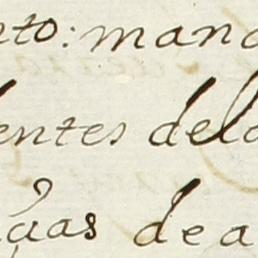 nto: mand
entes dela
guas dea